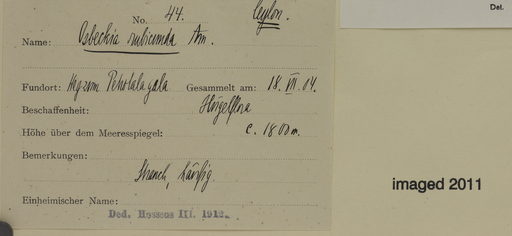 Det.
No. 44. Ceylon.
Name: Osbeckia rubicunda Arn.
Fundort: Weg zum Pehotalagala Gesammelt am: 18. VII. 04.
Beschaffenheit: Hügelflora
Höhe über dem Meeresspiegel: c. 1800 m.
Bemerkungen:
Strauch, häufig
Einheimischer Name:
Ded. Hosseus III. 1912.
imaged 2011